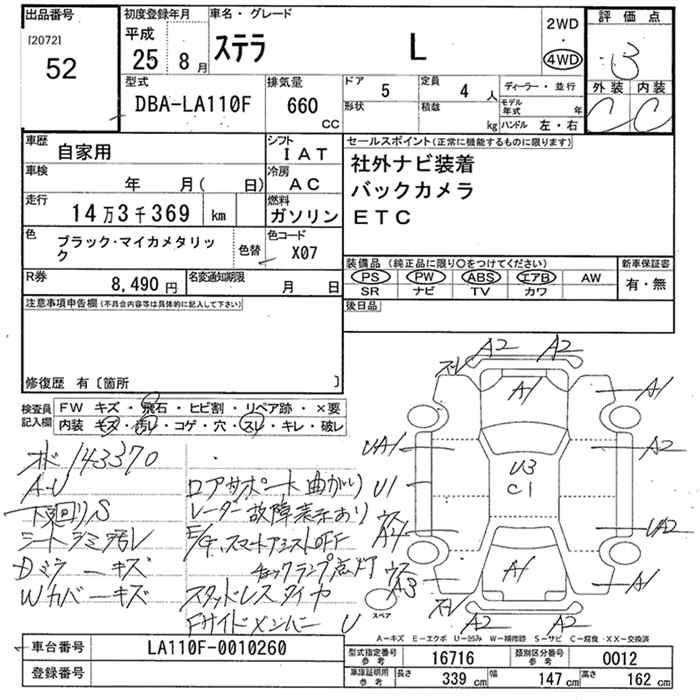 出品番号
[2072]
52
初度登録年月
平成
25 8月
車名・グレード
ステラ L
2WD
・
4WD
評価点
3
外装 内装
C C
型式
DBA-LA110F
排気量
660
CC
ドア 5
定員 4 人
形状
積載 kg
ディーラー・並行
モデル年式 年
ハンドル 左・右
車歴
自家用
シフト
IAT
車検
年 月( 日)
冷房
AC
走行
14万3千369 km
燃料
ガソリン
色
ブラック・マイカメタリック
色替
色コード
X07
R券
8,490円
名変通知期限
月 日
セールスポイント(正常に機能するものに限ります)
社外ナビ装着
バックカメラ
ETC
装備品(純正品に限り○をつけてください)
PS PW ABS エアB AW
SR ナビ TV カワ
新車保証書
有・無
後日品
注意事項申告欄(不具合内容等は具体的に記入して下さい)
修復歴 有〔箇所 〕
検査員記入欄
FW キズ・飛石・ヒビ割・リペア跡・×要
内装 キズ・汚レ・コゲ・穴・スレ・キレ・破レ
メーター 143370
A-U
下廻りS
シートシミ汚レ
Dミラーキズ
Wカバーキズ
ロアサポート曲がり
レーダー故障表示あり
E/G、スマートアシストOFF
チェックランプ点灯
スタッドレスタイヤ
Fサイドメンバー U
A2 A2
スレ
A1
A1
UA1
A2
U3
C1
U1
A4
UA2
A3
A1
A1
スレ
A2
A2
スペア
A-キズ E-エクボ U-凹み W-補修跡 S-サビ C-腐食・XX-交換済
車台番号
LA110F-0010260
登録番号
型式指定番号
参考
16716
類別区分番号
参考
0012
車庫証明用
参考
長さ 339 cm
幅 147 cm
高さ 162 cm